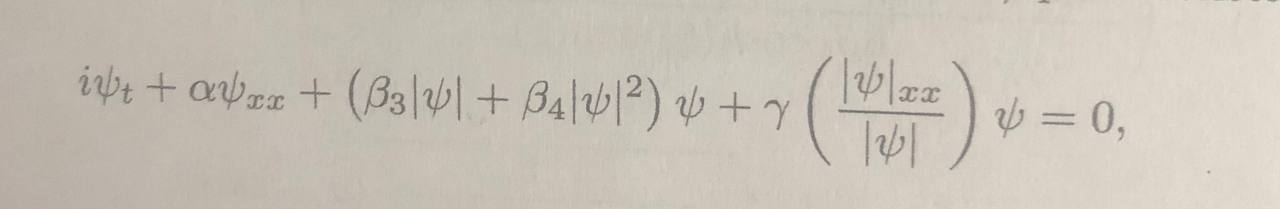 iψₜ + αψₓₓ + (β₃|ψ| + β₄|ψ|²) ψ + γ (|ψ|ₓₓ / |ψ|) ψ = 0,